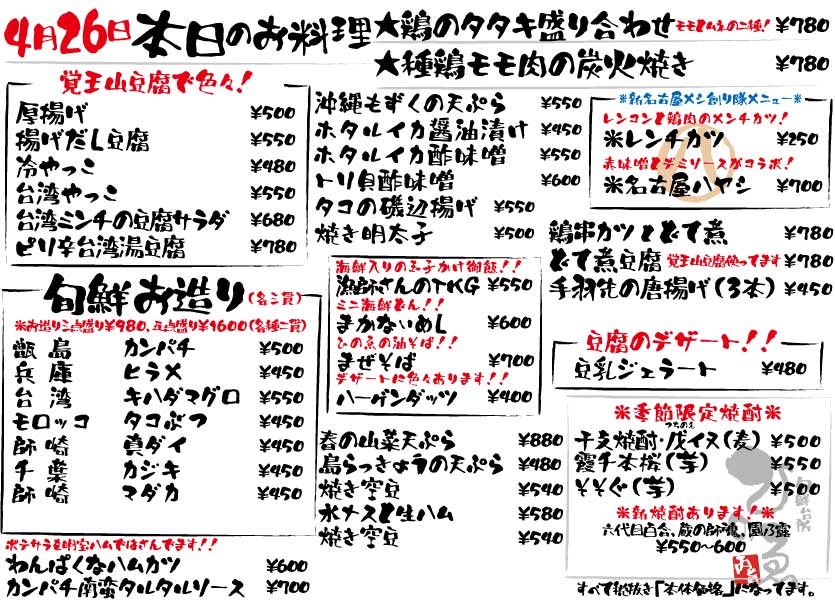 4月26日 本日のお料理
★鶏のタタキ盛り合わせ モモとムネの二種! ¥780
★種鶏モモ肉の炭火焼き ¥780
覚王山豆腐で色々!
厚揚げ ¥500
揚げだし豆腐 ¥550
冷やっこ ¥480
台湾やっこ ¥550
台湾ミンチの豆腐サラダ ¥680
ピリ辛台湾湯豆腐 ¥780
旬鮮お造り(各三貫)
※お造り三点盛り¥980、五点盛り¥1600(各種二貫)
甑島 カンパチ ¥500
兵庫 ヒラメ ¥450
台湾 キハダマグロ ¥550
モロッコ タコぶつ ¥450
師崎 真ダイ ¥450
千葉 カジキ ¥450
師崎 マダカ ¥450
ポテサラと明宝ハムではさんでます!!
わんぱくなハムカツ ¥600
カンパチ南蛮タルタルソース ¥700
沖縄もずくの天ぷら ¥550
ホタルイカ醤油漬け ¥450
ホタルイカ酢味噌 ¥550
トリ貝酢味噌 ¥600
タコの磯辺揚げ ¥550
焼き明太子 ¥500
海鮮入りの玉子かけ御飯!!
漁師さんのTKG ¥550
ミニ海鮮どん!!
まかないめし ¥600
ひの魚の油そば!!
まぜそば ¥700
デザートに色々あります!!
ハーゲンダッツ ¥400
春の山菜天ぷら ¥880
島らっきょうの天ぷら ¥480
焼き空豆 ¥540
水ナスと生ハム ¥580
焼き空豆 ¥540
※新名古屋メシ創り隊メニュー※
レンコンと鶏肉のメンチカツ!
※レンチカツ ¥250
赤味噌とデミソースがコラボ!
※名古屋ハヤシ ¥700
鶏串カツとどて煮 ¥780
どて煮豆腐 覚王山豆腐使ってます ¥780
手羽先の唐揚げ(3本) ¥450
豆腐のデザート!!
豆乳ジェラート ¥480
※季節限定焼酎※
つちのえ
干支焼酎・戊イヌ(麦) ¥500
霞千本桜(芋) ¥550
そそぐ(芋) ¥500
※新焼酎あります!※
六代目百合、蔵の師魂、園乃露
¥550~600
旬鮮台所
すべて税抜き「本体価格」になってます。